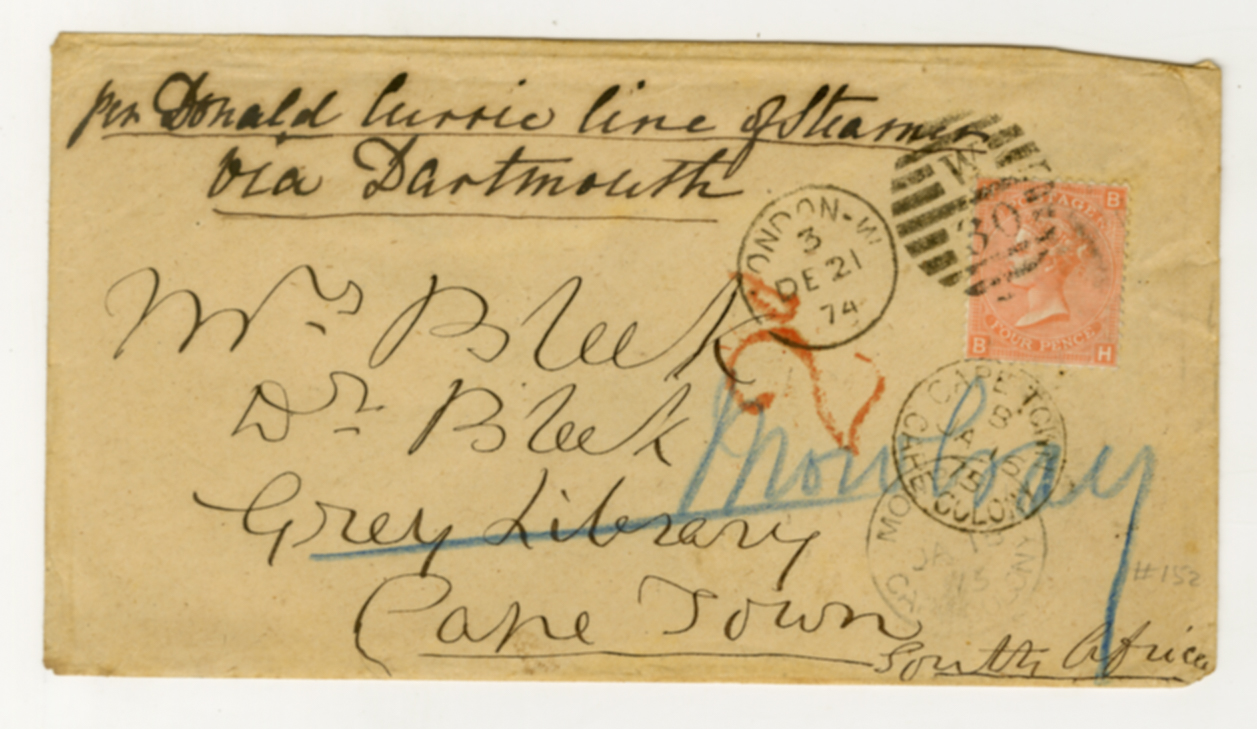 per Donald Currie line of Steamer
via Dartmouth
LONDON-W
3
DE 21
74
W
30
POSTAGE
B
FOUR PENCE
B H
Mrs Bleek
Dr Bleek
Grey Library
Cape Town
South Africa
Mowbray
CAPE TOWN
B
JA 15
75
CAPE COLONY
JA
75
#152